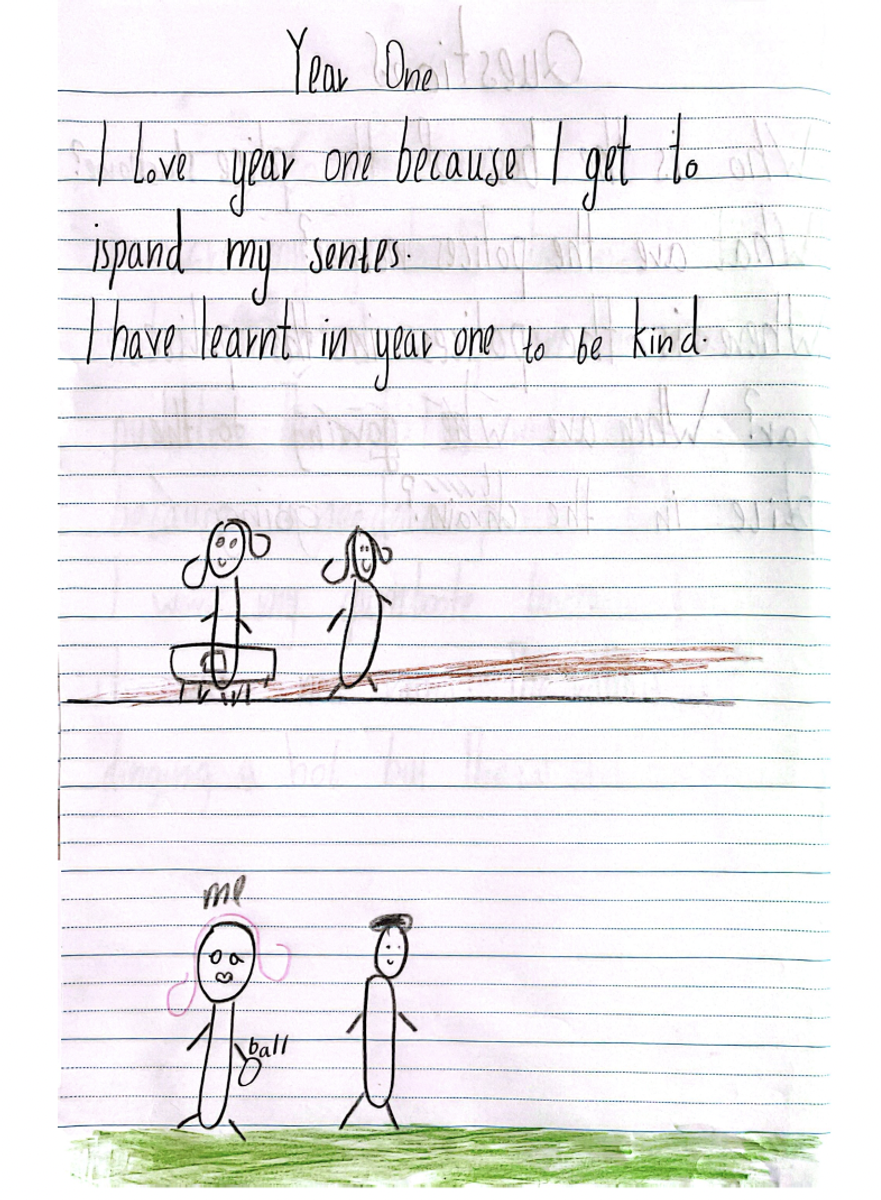 Year One
I Love year one because I get to
ispand my sentes.
I have learnt in year one to be kind.
me
ball